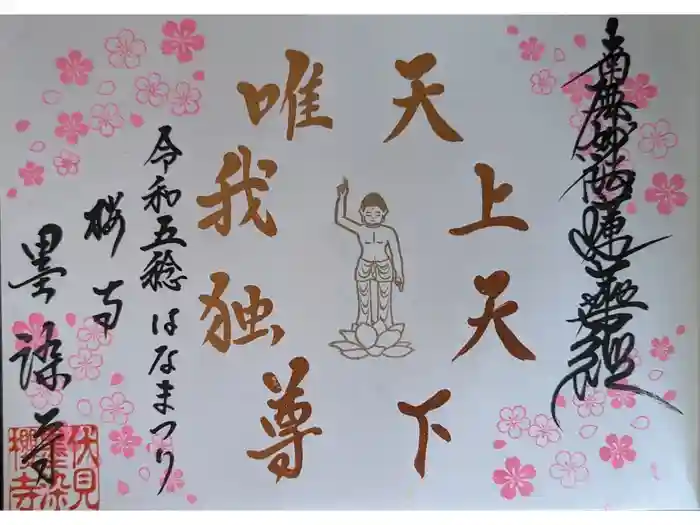 南無妙法蓮華経
天上天下
唯我独尊
令和五稔 はなまつり
桜寺
墨染寺
伏見
墨染
櫻寺